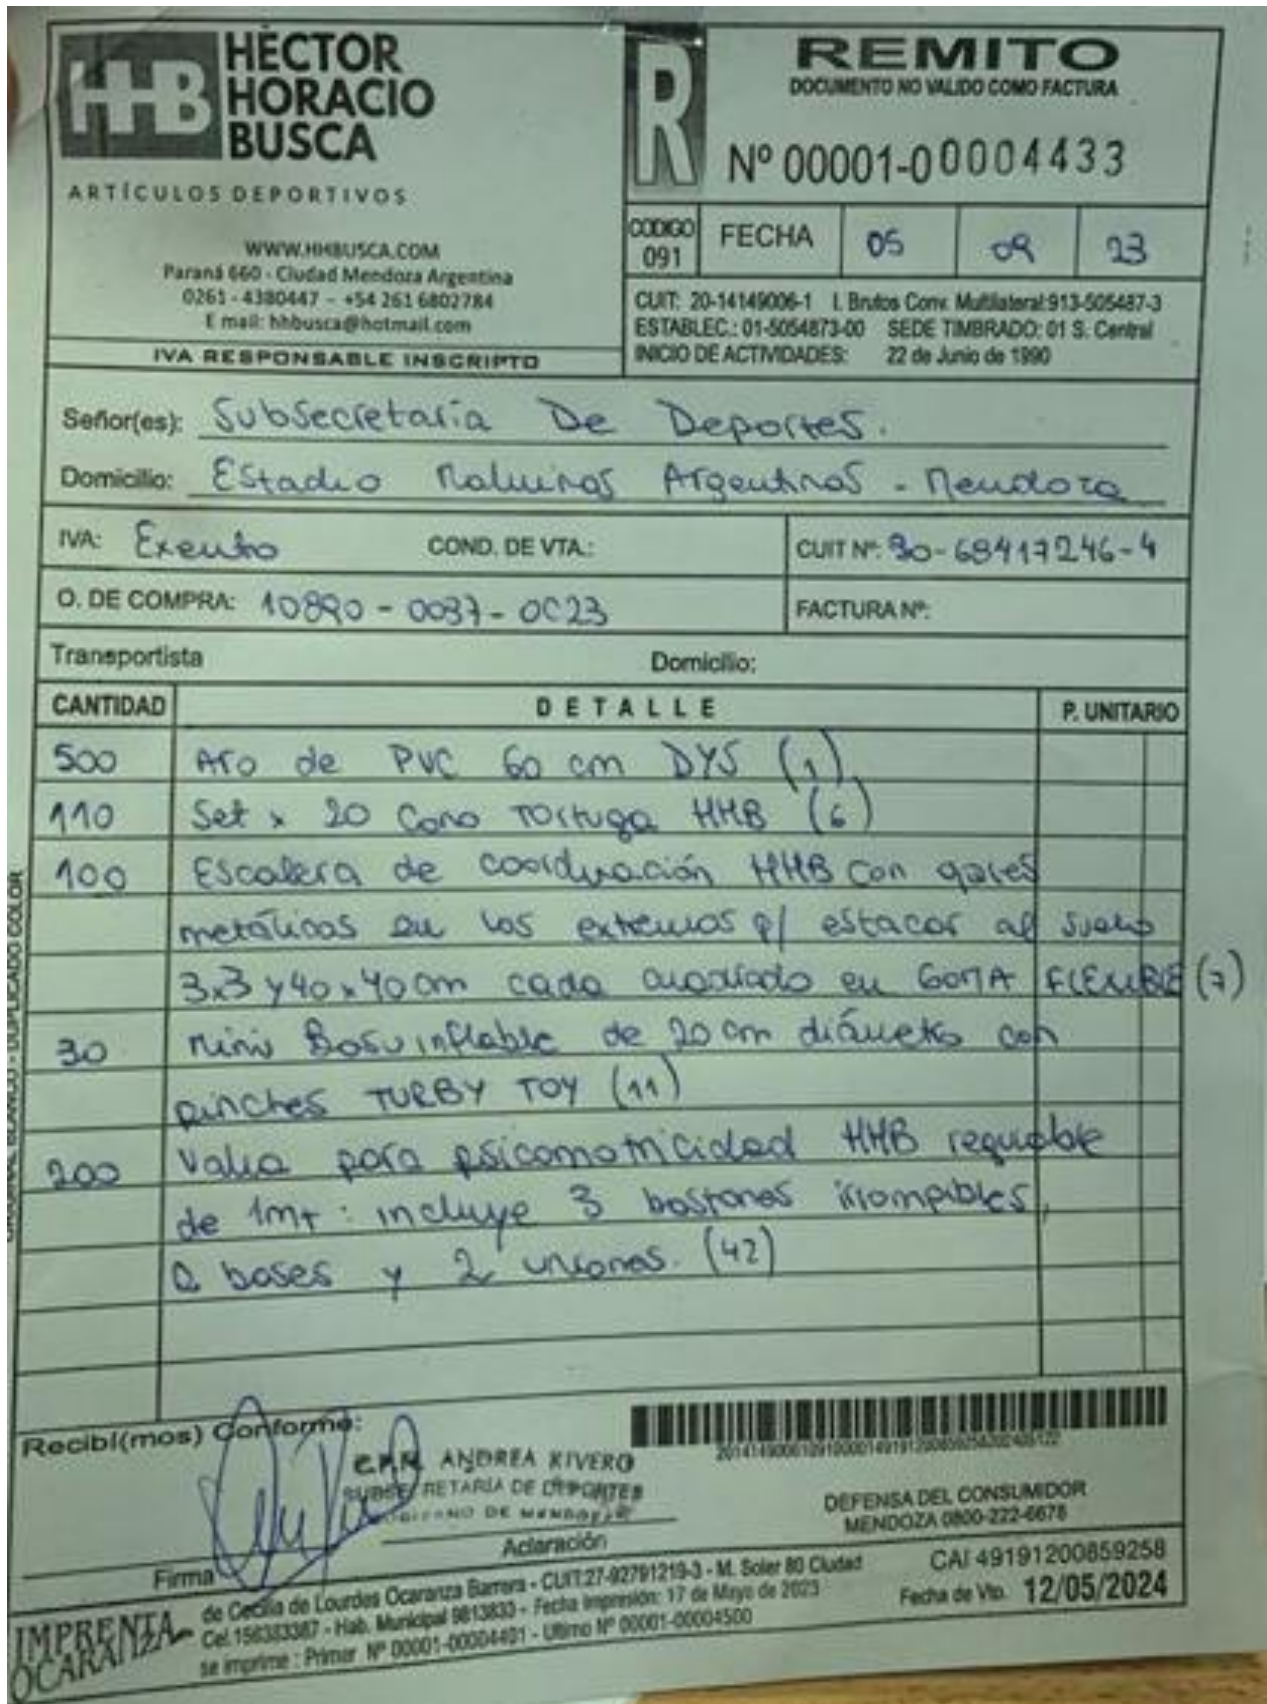 HHB
HÉCTOR
HORACIO
BUSCA
ARTÍCULOS DEPORTIVOS
WWW.HHBUSCA.COM
Paraná 660 - Ciudad Mendoza Argentina
0261 - 4380447 - +54 261 6802784
E mail: hhbusca@hotmail.com
IVA RESPONSABLE INSCRIPTO
R
REMITO
DOCUMENTO NO VALIDO COMO FACTURA
Nº 00001-00004433
CODIGO 091
FECHA 05 09 23
CUIT: 20-14149006-1 I. Brutos Conv. Multilateral:913-505487-3
ESTABLEC.: 01-5054873-00 SEDE TIMBRADO: 01 S. Central
INICIO DE ACTIVIDADES: 22 de Junio de 1990
Señor(es): Subsecretaría De Deportes.
Domicilio: Estadio Malvinas Argentinas - Mendoza
IVA: Exento COND. DE VTA.: CUIT Nº: 30-68417246-4
O. DE COMPRA: 10890-0037-OC23 FACTURA Nº:
Transportista Domicilio:
CANTIDAD DETALLE P. UNITARIO
500 Aro de PVC 60 cm DYS (1)
110 Set x 20 Cono Tortuga HHB (6)
100 Escalera de coordinación HHB con
metálicos en los extremos p/ estacar al suelo
3x3 y 40x40cm cada cuadrado en GOMA FLEXIBLE (7)
30 Mini Bosu inflable de 20 cm diámetro con
pinches TURBY TOY (11)
200 Valla para psicomotricidad HHB regulable
de 1mt: incluye 3 bastones irrompibles,
2 bases y 2 uniones. (42)
Recibí(mos) Conforme:
ANDREA RIVERO
SUBSECRETARIA DE DEPORTES
GOBIERNO DE MENDOZA
Firma Aclaración
DEFENSA DEL CONSUMIDOR
MENDOZA 0800-222-6678
CAI 49191200859258
Fecha de Vto. 12/05/2024
IMPRENTA
OCARANZA
de Cecilia de Lourdes Ocaranza Barrera - CUIT:27-92791219-3 - M. Soler 80 Ciudad
Cel.156383387 - Hab. Municipal 9813833 - Fecha Impresión: 17 de Mayo de 2023
se imprime : Primer Nº 00001-00004401 - Ultimo Nº 00001-00004500